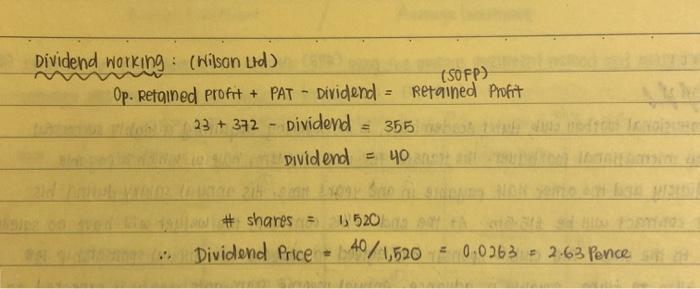 Dividend working : (Wilson Ltd)
(SOFP)
Op. Retained Profit + PAT - Dividend = Retained Profit
23 + 372 - Dividend = 355
Dividend = 40
# shares = 1,520
∴ Dividend Price = 40/1,520 = 0.0263 = 2.63 Pence